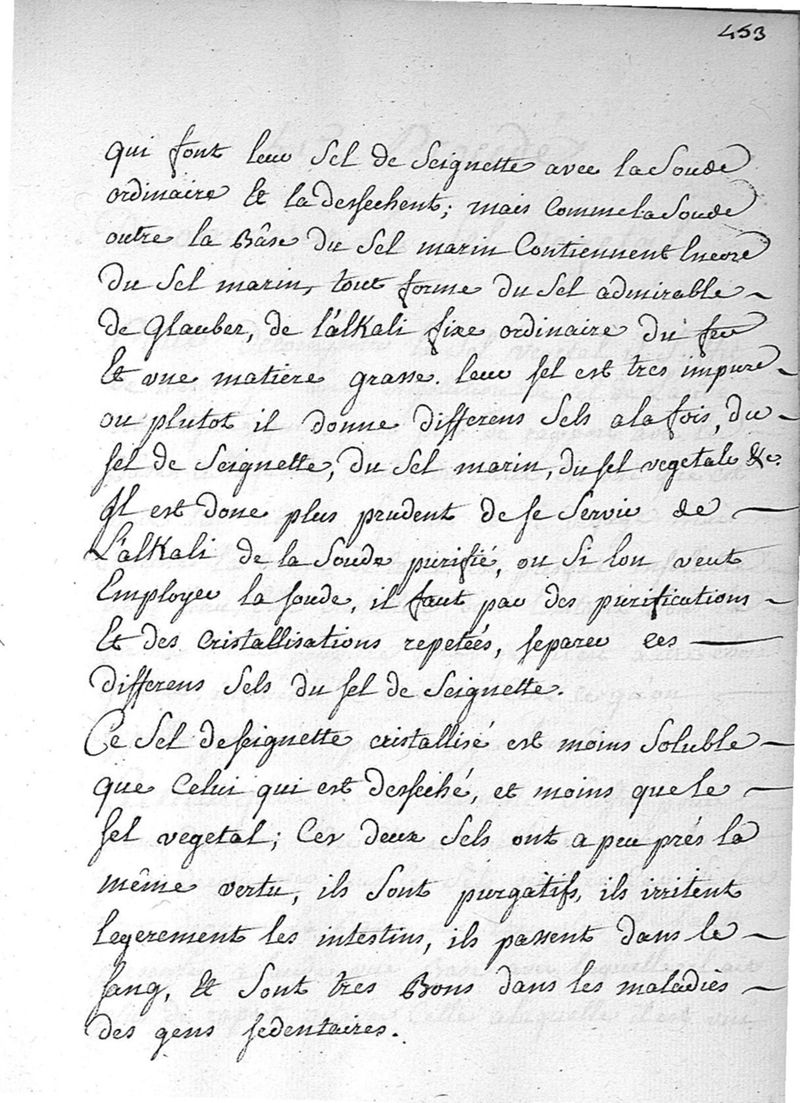 453
qui font leur Sel de Seignette avec la Soude
ordinaire et la dessechent; mais Comme la Soude
outre la Bâse du Sel marin Contiennent Encore
du Sel marin, tout forme du Sel admirable
de Glauber, de l'alKali fixe ordinaire du feu
et une matiere grasse. leur sel est tres impure
ou plutot il donne differens Sels a la fois, du
sel de Seignette, du Sel marin, du sel vegetale &c.
Il est donc plus prudent de se Servir de
L'alKali de la Soude purifié, ou Si lon veut
Employer la soude, il faut par des purifications
et des cristallisations repeteés, separer ces
differens Sels du sel de Seignette.
Ce Sel de seignette cristallisé est moins Soluble
que Celui qui est desseché, et moins que le
sel vegetal; Ces deux Sels ont a peu prés la
même vertu, ils Sont purgatifs, ils irritent
legerement les intestins, ils passent dans le
sang, et Sont tres Bons dans les maladies
des gens sedentaires.